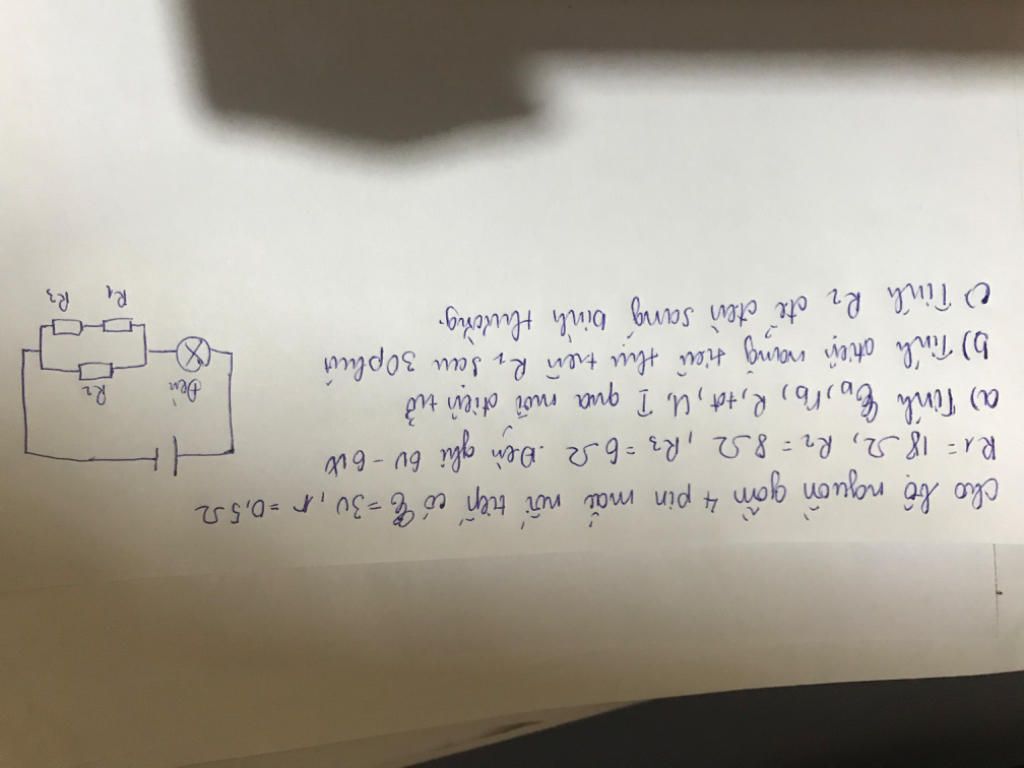 Cho bộ nguồn gồm 4 pin mắc nối tiếp có ℰ = 3V, r = 0,5Ω
R1 = 18Ω, R2 = 8Ω, R3 = 6Ω. Đèn ghi 6V - 6W
a) Tính ℰb, rb, R, tđ, U, I qua mỗi điện trở
b) Tính điện năng tiêu thụ trên R2 sau 30 phút
c) Tính R2 để đèn sáng bình thường.
Đèn
R2
R1
R3